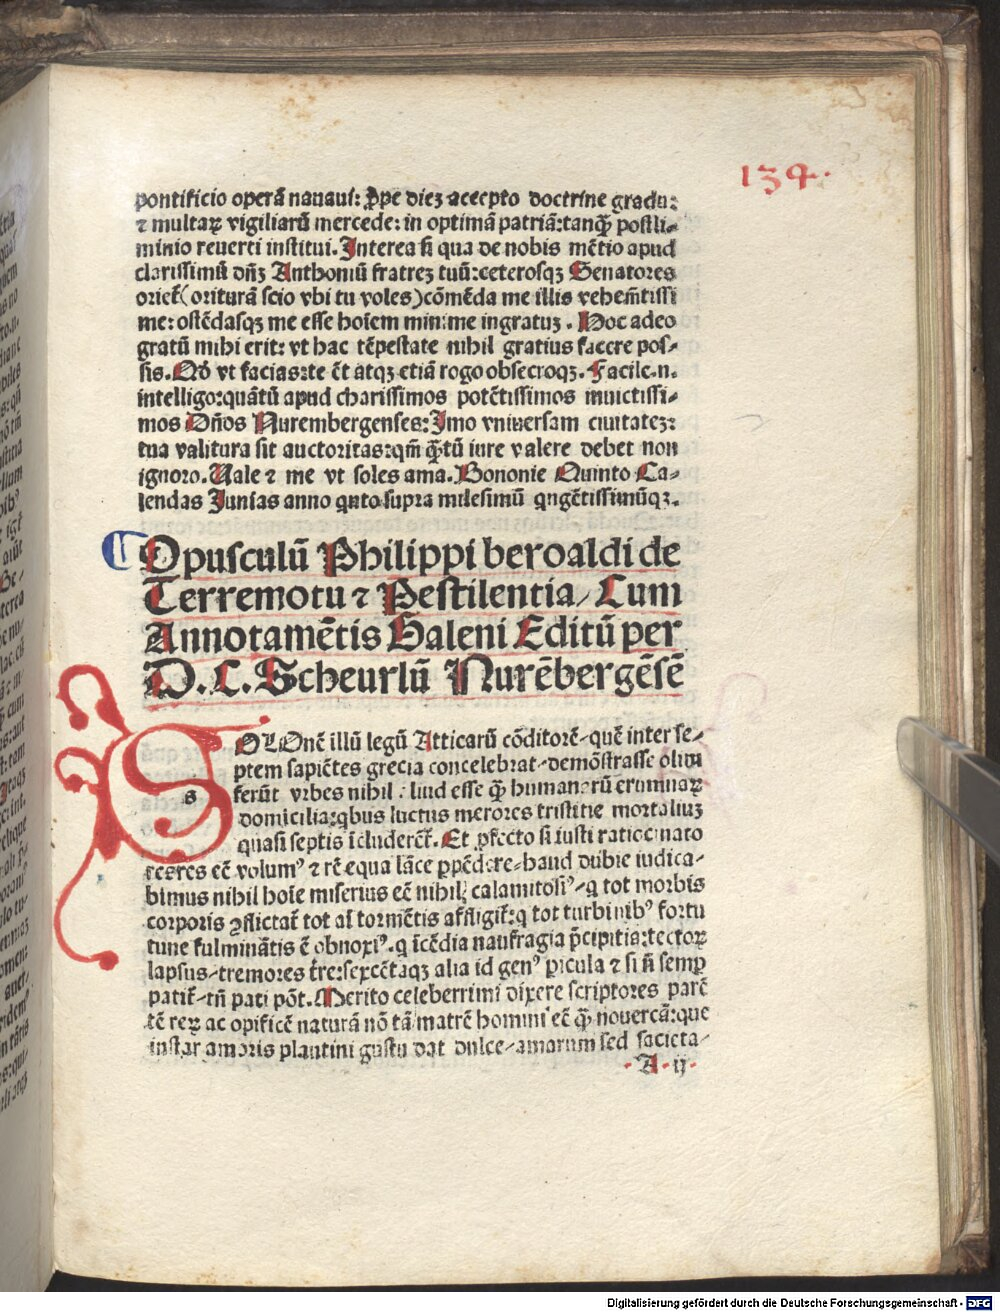 134.
pontificio operā nauaui: ꝓpe dieꝫ accepto doctrine gradu:
⁊ multaꝝ vigiliarū mercede: in optimā patriā: tanqᷓꝫ postli⸗
minio reuerti institui. Interea si qua de nobis mētio apud
clarissimū dn̄ꝫ Anthoniū fratreꝫ tuū: ceterosqꝫ Senatores
oriet᷑ (oriturā scio vbi tu voles) cōmēda me illis vehemētissi
me: ostēdasqꝫ me esse hoīem minime ingratuꝫ. Hoc adeo
gratū mihi erit: vt hac tēpestate nihil gratius facere pos⸗
sis. Qd̄ vt facias: te ēt atqꝫ etiā rogo obsecroqꝫ. Facile .n.
intelligo: quātū apud charissimos potētissimos inuictissi⸗
mos Dn̄os Nurembergenses: Imo vniuersam ciuitateꝫ:
tua valitura sit auctoritas: qm̄ qᷓꝫtū iure valere debet non
ignoro. Uale ⁊ me vt soles ama. Bononie Quinto Ca⸗
lendas Junias anno qnto supra milesimū qngētissimūqꝫ.
Opusculū Philippi beroaldi de
Terremotu ⁊ Pestilentia / Cum
Annotamētis Galeni Editū per
D. C. Scheurlū Nurēbergēsē
s SOLOnē illū legū Atticarū cōditorē⸗quē inter se⸗
ptem sapiētes grecia concelebrat⸗demōstrasse olim
ferūt vrbes nihil aliud esse qᷓꝫ humanarū erumnaꝝ
domicilia: qbus luctus merores tristitie mortaliuꝫ
quasi septis īcluderet᷑. Et ꝓfecto si iusti ratiocinato
res eē volumꝰ ⁊ rē equa lāce ꝑpēdere⸗haud dubie iudica⸗
bimus nihil hoīe miserius eē nihil calamitosiꝰ⸗q tot morbis
corporis ꝯflictat᷑ tot aī tormētis affligit᷑: q tot turbinibꝰ fortu
tune fulminātis ē obnoxiꝰ. q īcēdia naufragia p̄cipitia: tectoꝝ
lapsus⸗tremores t̄re: sexcētaqꝫ alia id genꝰ ꝑicula ⁊ si n̄ semꝑ
patit᷑⸗tn̄ pati pōt. Merito celeberrimi dixere scriptores parē
tē reꝝ ac opificē naturā nō tā matrē homini eē qᷓꝫ nouercā: que
instar amoris plautini gustu dat dulce⸗amarum sed sacieta⸗
A ij
Digitalisierung gefördert durch die Deutsche Forschungsgemeinschaft - DFG